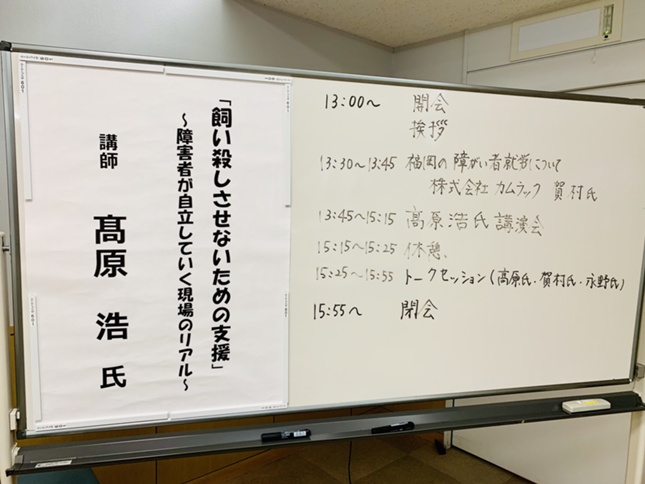 「飼い殺しさせないための支援」
～障害者が自立していく現場のリアル～
講師 髙原 浩 氏
13:00～ 開会
挨拶
13:30～13:45 福岡の障がい者就労について
株式会社カムラック 賀村氏
13:45～15:15 高原浩氏 講演会
15:15～15:25 休憩、
15:25～15:55 トークセッション(高原氏・賀村氏・永野氏)
15:55～ 閉会